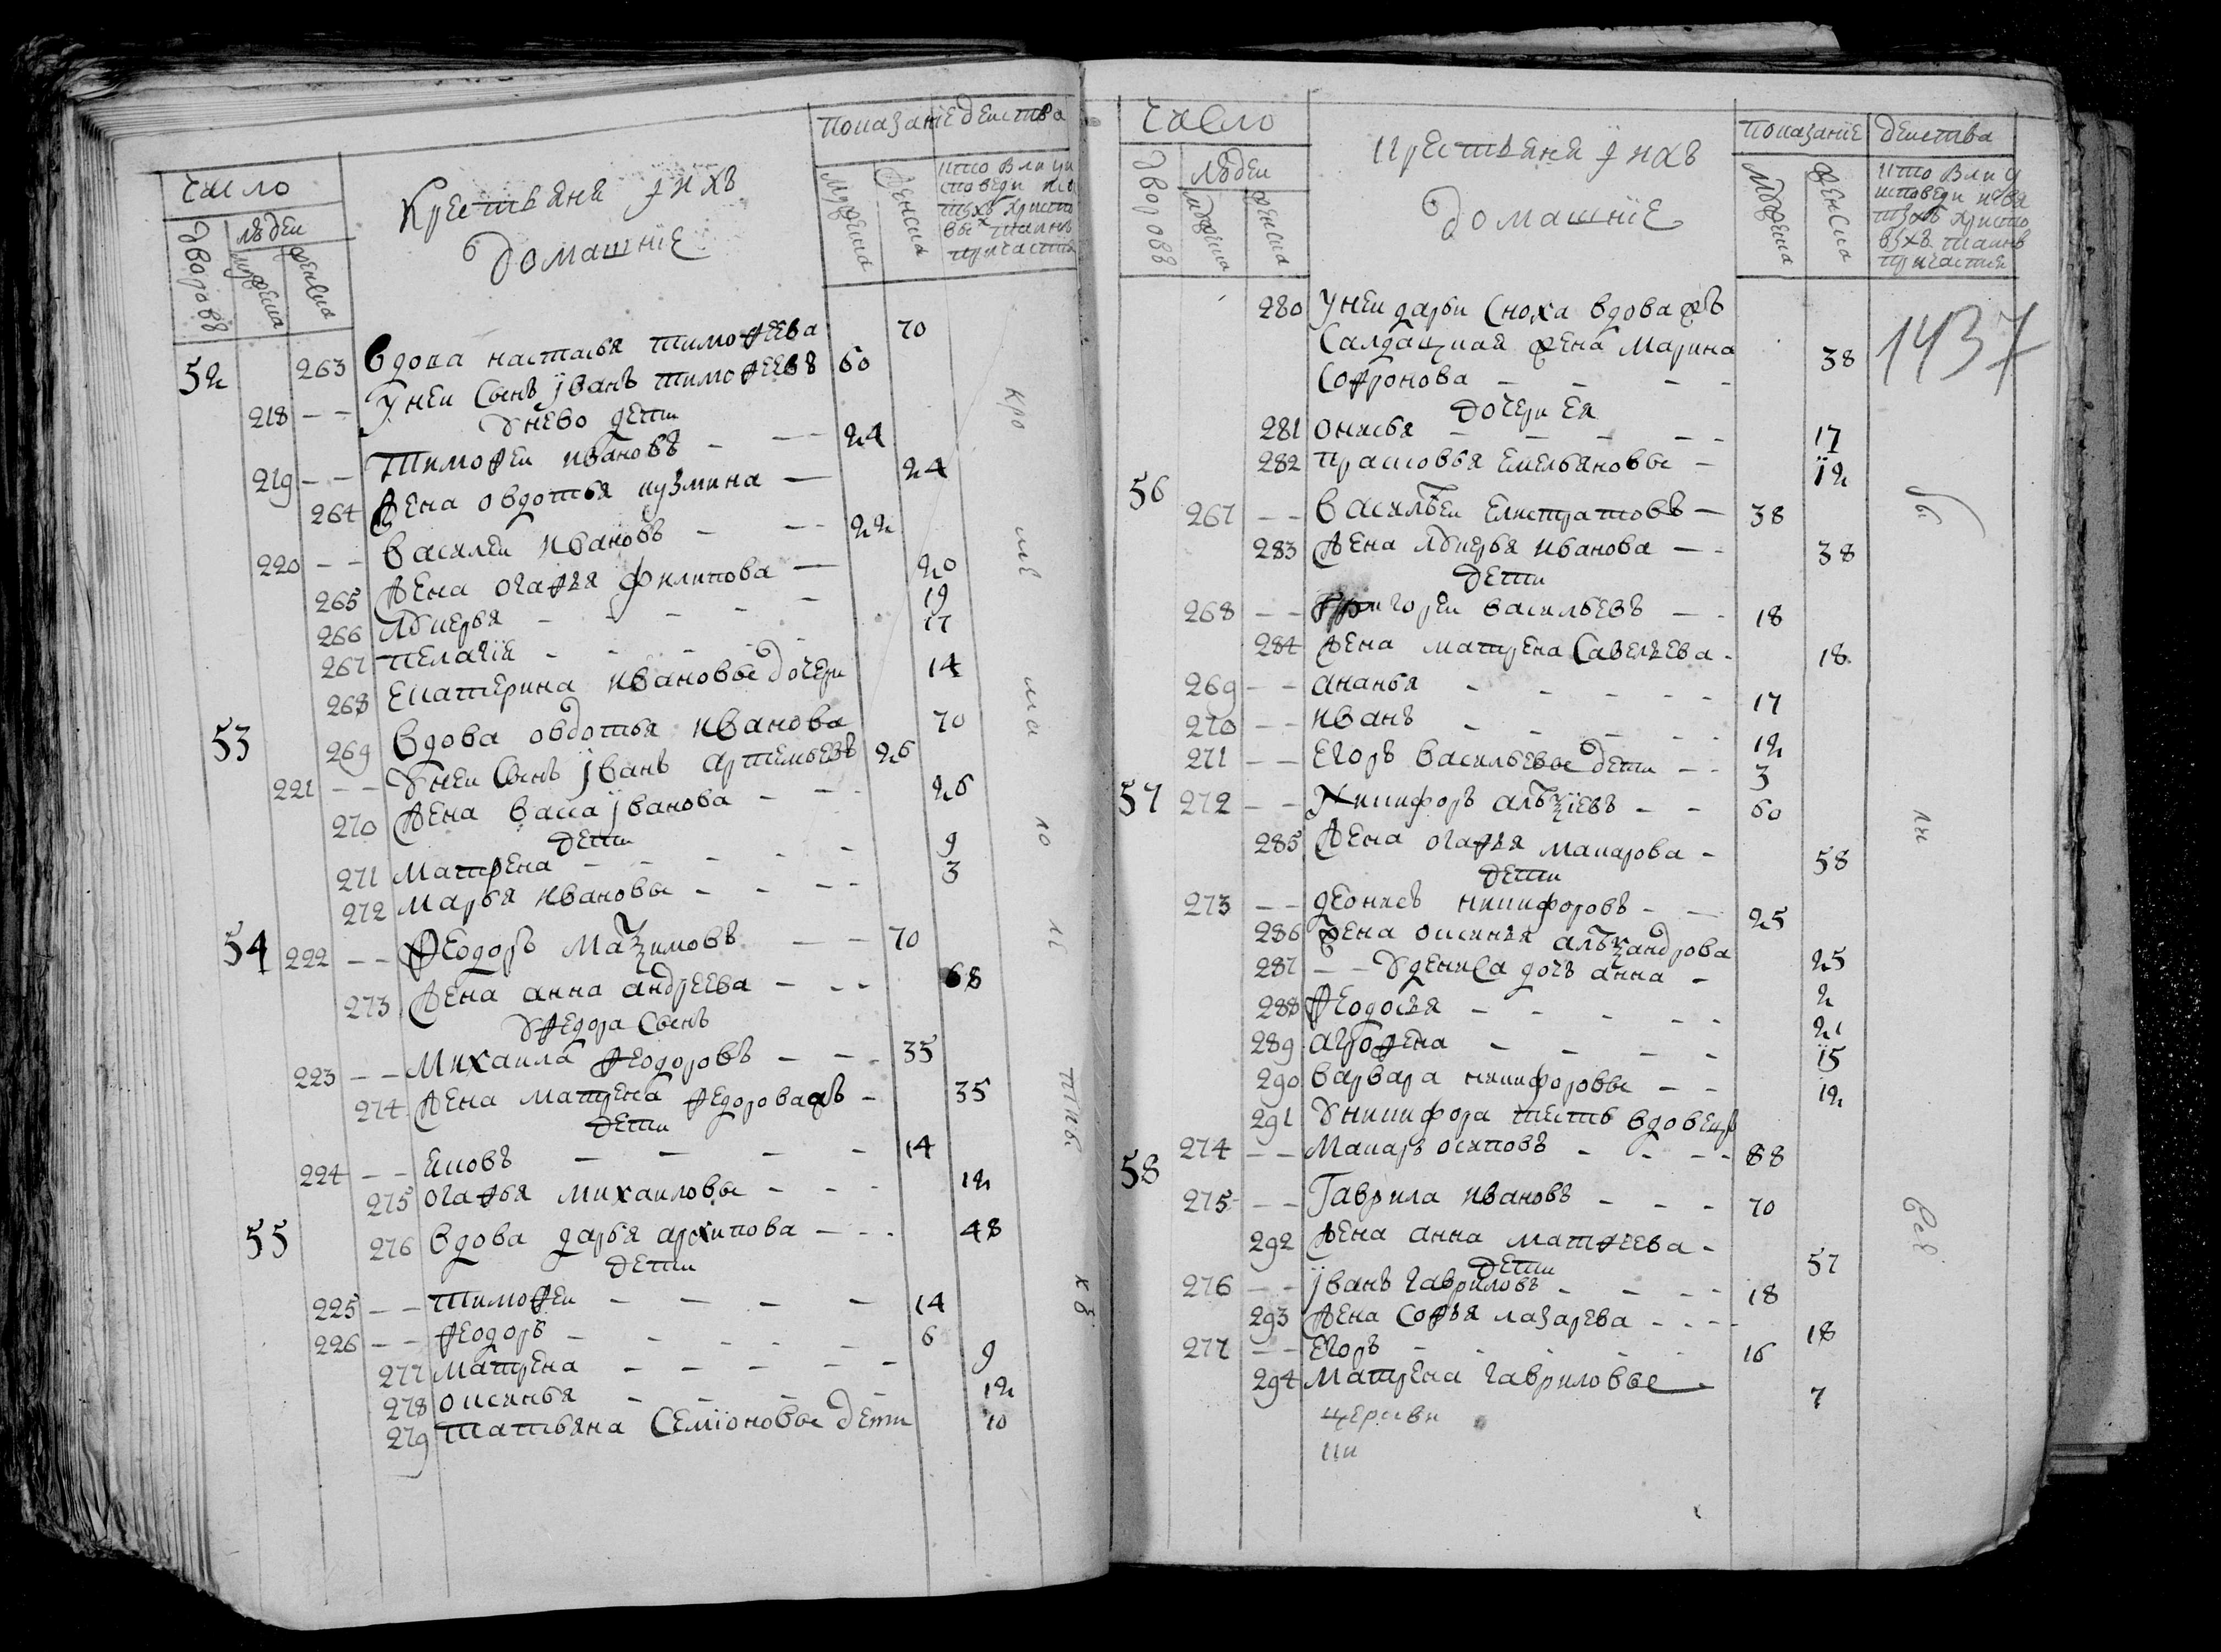 Число
Крестьяня и ихъ
домашние
показание действа
Дворовъ
людеи
мужеска
женска
мужеска
женска
52 263 вдова настасья тимофеева 70
218 -- У неи сынъ Iванъ тимофеевъ 60
У нево дети
219 -- Тимофеи ивановъ 24
264 жена овдотья кузмина 24
220 -- василеи ивановъ 22
265 жена огафья филипова 20
266 лукерья 19
267 пелагия 17
268 екатерина ивановы дочери 14
53 269 вдова овдотья иванова 70
221 -- У неи сынъ Iванъ артемьевъ 26
270 жена васса Iванова 26
дети
271 матрена 9
272 марья ивановы 3
54 222 -- Феодоръ Мазимовъ 70
273 жена анна андреева 68
У федора сынъ
223 -- Михаила феодоровъ 35
274 жена матрена федорова 35
дети
224 -- яковъ 14
275 огафья михаиловы 12
55 276 вдова дарья архипова 48
дети
225 -- тимофеи 14
226 -- феодоръ 6
277 матрена 9
278 оксинья 12
279 татьяна семионовы дети 10
Число
крестьяня и ихъ
домашние
показание действа
Дворовъ
людеи
мужеска
женска
мужеска
женска
1437
280 У неи дарьи сноха вдова
салдацкая жена марина
софронова 38
дочери ея
281 онисья 17
282 прасковья емельяновы 12
56 267 -- василеи елистратовъ 38
283 жена лукерья иванова 38
дети
268 -- григореи васильевъ 18
284 жена матрена савельева 18
269 -- ананья 17
270 -- иванъ 12
271 -- егоръ васильевы дети 3
57 272 -- Никифоръ алѣѯиевъ 60
285 жена огафья макарова 58
дети
273 -- деонисъ никифоровъ 25
286 жена оксинья алѣѯандрова 25
287 -- У дениса дочь анна 2
288 феодосья 21
289 агрофена 15
290 варвара никифоровы 12
291 У никифора тесть вдовецъ
274 -- Макаръ осиповъ 88
58 275 -- Гаврила ивановъ 70
292 жена анна матфеева 57
дети
276 -- Iванъ гавриловъ 18
293 жена софья лазарева 18
277 -- егоръ 16
294 матрена гавриловы 7